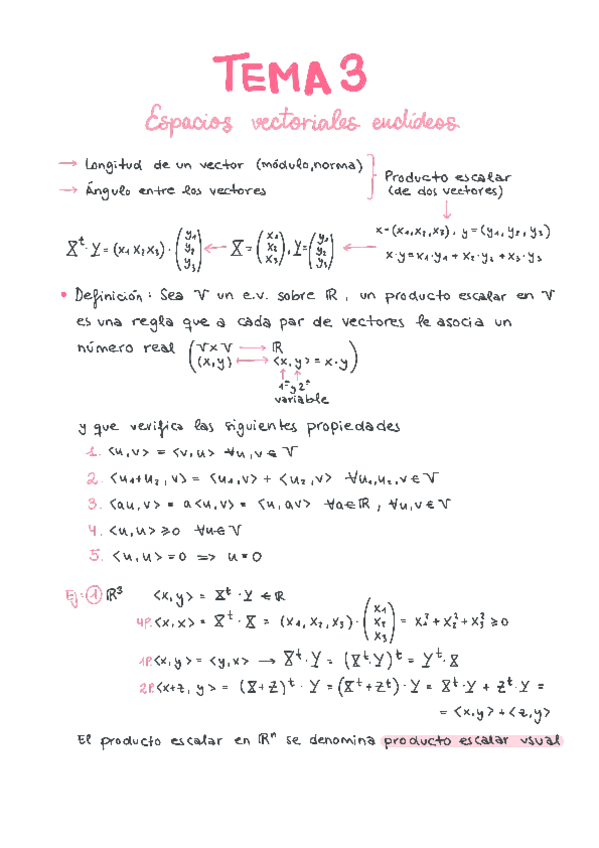 TEMA 3
Espacios vectoriales euclídeos
→ Longitud de un vector (módulo, norma)
→ Ángulo entre los vectores
Producto escalar
(de dos vectores)
x=(x₁,x₂,x₃), y=(y₁,y₂,y₃)
x·y=x₁·y₁+x₂·y₂+x₃·y₃
Xᵗ·Y=(x₁ x₂ x₃)·(y₁ y₂ y₃) ← X=(x₁ x₂ x₃), Y=(y₁ y₂ y₃) ←
• Definición: Sea V un e.v. sobre ℝ, un producto escalar en V
es una regla que a cada par de vectores le asocia un
número real (V×V → ℝ
(x,y) ↦ <x,y> = x·y)
1ª y 2ª
variable
y que verifica las siguientes propiedades
1. <u,v> = <v,u> ∀u,v∈V
2. <u₁+u₂,v> = <u₁,v> + <u₂,v> ∀u₁,u₂,v∈V
3. <au,v> = a<u,v> = <u,av> ∀a∈ℝ, ∀u,v∈V
4. <u,u> ≥0 ∀u∈V
5. <u,u> =0 => u=0
Ej: ① ℝ³ <x,y> = Xᵗ·Y ∈ℝ
4P. <x,x> = Xᵗ·X = (x₁,x₂,x₃)·(x₁ x₂ x₃) = x₁²+x₂²+x₃² ≥0
1P. <x,y> = <y,x> → Xᵗ·Y = (Xᵗ·Y)ᵗ = Yᵗ·X
2P. <x+z, y> = (X+Z)ᵗ·Y = (Xᵗ+Zᵗ)·Y = Xᵗ·Y + Zᵗ·Y =
= <x,y> + <z,y>
El producto escalar en ℝⁿ se denomina producto escalar usual